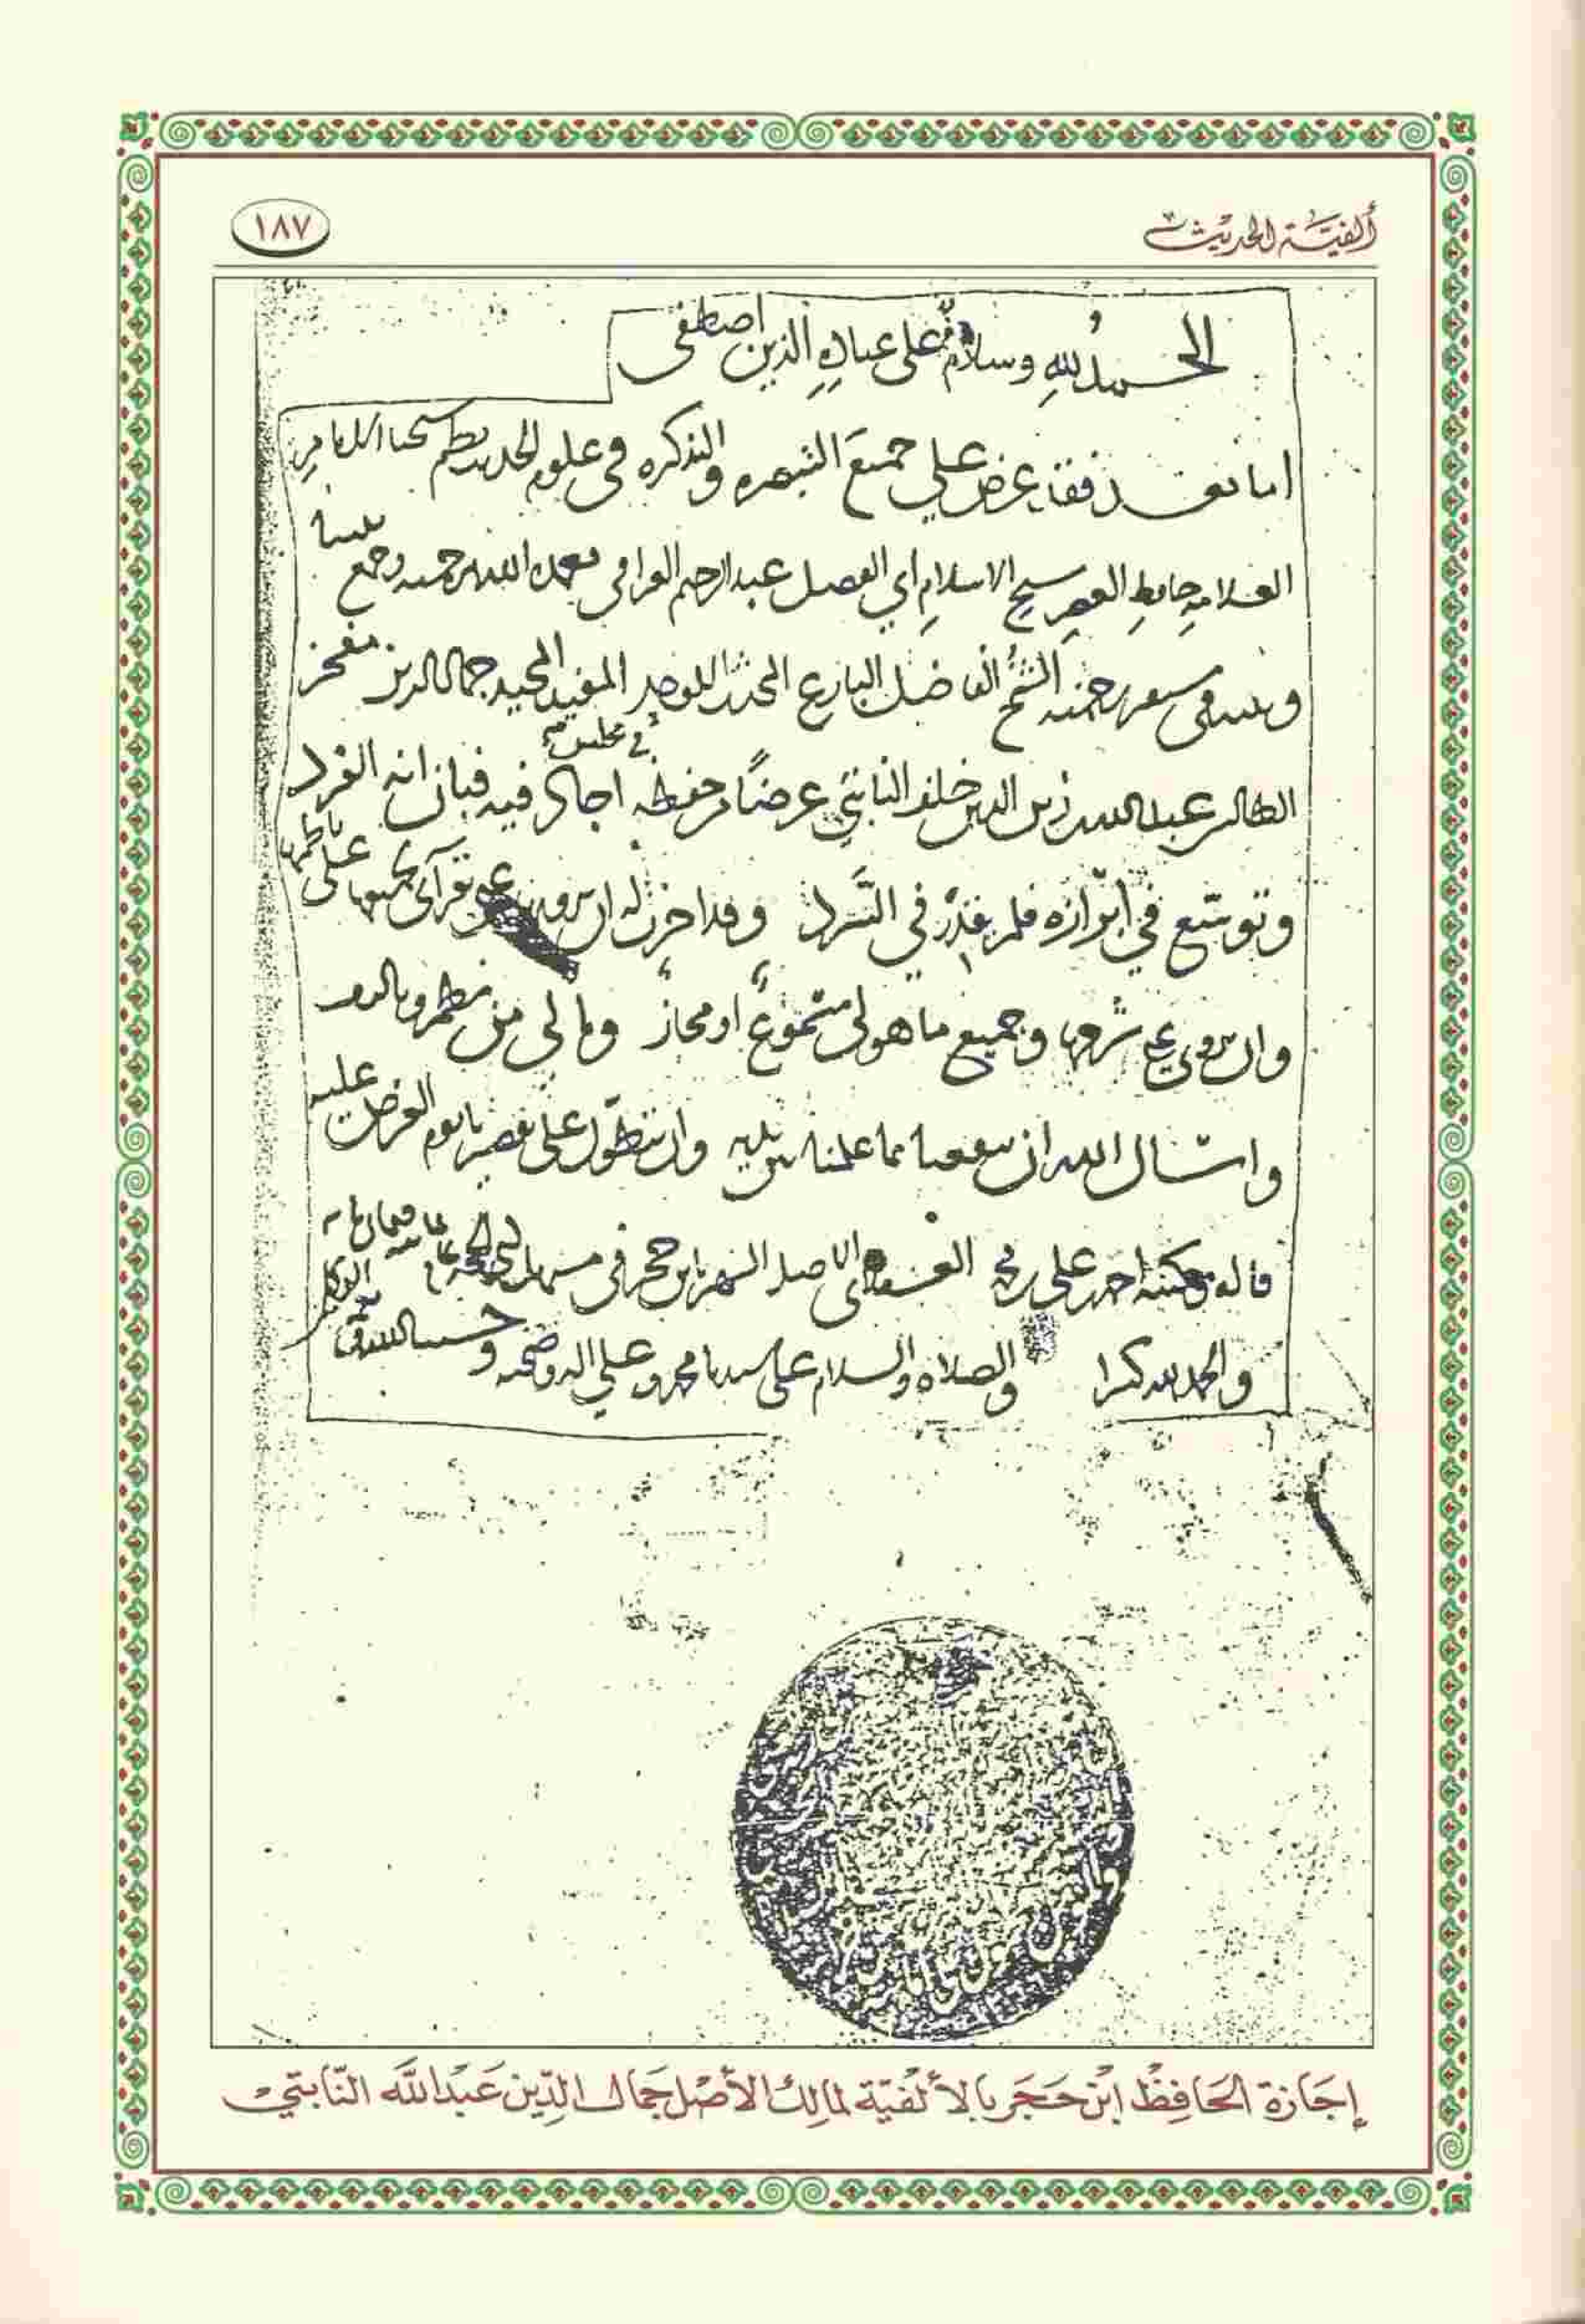 ألفية الحديث
١٨٧
الحمد لله وسلام على عباده الذين اصطفى
اما بعد فقد عرض علي جميع التبصره والتذكره في علوم الحديث نظم شيخنا الامام
العلامه حافظ العصر شيخ الاسلام ابي الفضل عبد الرحيم العراقي تغمده الله برحمته وجمع بيننا
وبينه في مستقر رحمته الشيخ الفاضل البارع المحدث الاوحد المفيد المجيد جمال الدين مفخر
الطالبين عبد الله بن زين الدين خلف النابتي عرضا من حفظه في مجلس اجاد فيه فبان انه الفرد
وتوسع في ابرازه فلم يقدر في السرد وقد اجزت له ان يرويها عني بقرآتي لجميعها على ناظمها
وان يروي عني شرحها وجميع ما هو لي مسموع او مجاز وما لي من نظم وتاليف
واسال الله ان ينفعنا بما علمنا بين يديه وان يتطول على تقصيرنا يوم العرض عليه
قاله وكتبه احمد بن علي بن العسقلاني الاصل الشهير بابن حجر في مستهل ذي الحجه عام
والحمد لله كثيرا والصلاة والسلام على سيدنا محمد وعلى اله وصحبه وحسبنا الله ونعم الوكيل
إجازة الحافظ ابن حجر بالألفية لمالك الأصل جمال الدين عبد الله النابتي